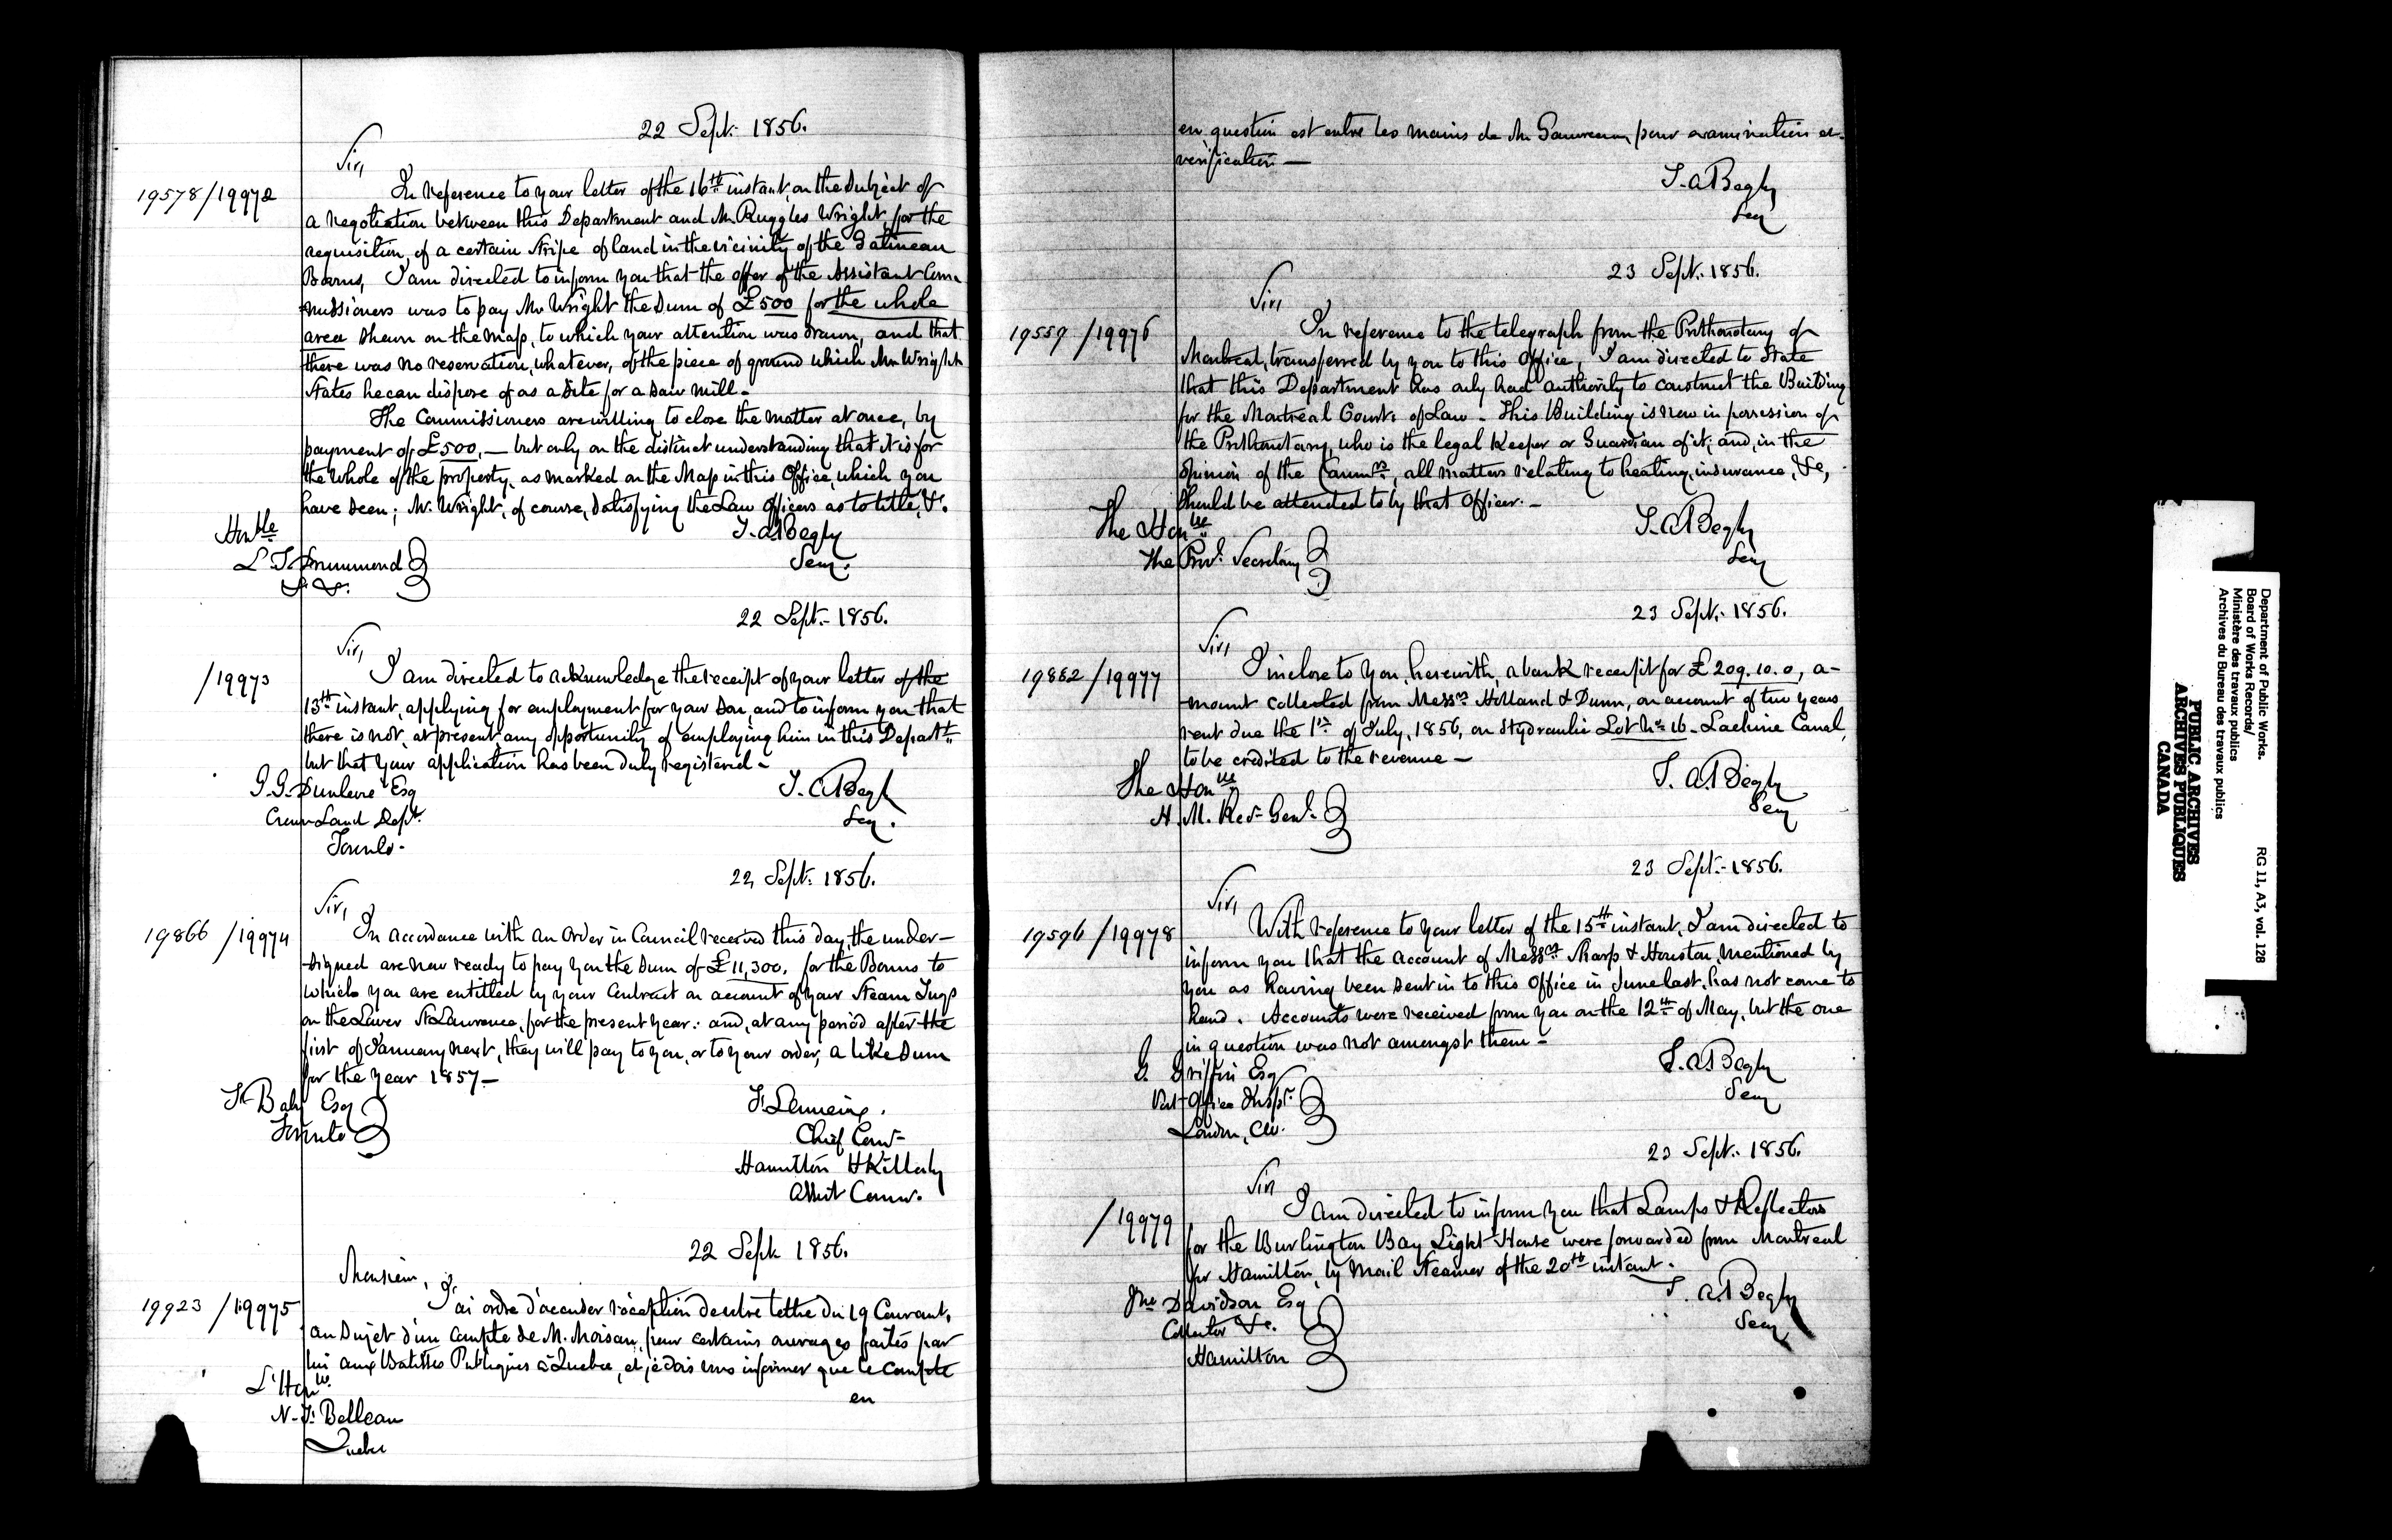 22 Sept. 1856.
Sir,
19578/19972
In reference to your letter of the 16th instant, on the subject of
a negotiation between this Department and Mr Ruggles Wright, for the
requisition, of a certain stripe of land in the vicinity of the Gatineau
Booms, I am directed to inform you that the offer of the Assistant Com-
missioners was to pay Mr Wright the sum of £500 for the whole
area shewn on the map, to which your attention was drawn, and that
there was no reservation, whatever, of the piece of ground which Mr Wright
states he can dispose of as a site for a saw mill.
The Commissioners are willing to close the matter at once, by
payment of £500, — but only on the distinct understanding that it is for
the whole of the property, as marked on the Map in this Office, which you
have seen; Mr. Wright, of course, satisfying the Law Officers as to title, &c.
Honble
L. T. Drummond
&. &.
T. A. Begly
Secy.
22 Sept. 1856.
Sir,
/19973
I am directed to acknowledge the receipt of your letter of the
13th instant, applying for employment for your son, and to inform you that
there is not, at present any opportunity of employing him in this Departt.
but that your application has been duly registered -
Dunlevie Esq
Crown Land Dept.
Toronto.
T. A. Begly
Secy.
22 Sept. 1856.
Sir,
19866 /19974
In accordance with an Order in Council received this day, the under-
signed are now ready to pay you the sum of £11,300, for the Bonus to
which you are entitled by your Contract on account of your Steam Tugs
on the Lower St Lawrence, for the present year: and, at any period after the
first of January next, they will pay to you, or to your order, a like sum
for the year 1857 —
Fr Baby Esq
Toronto
F. Lemieux.
Chief Comr
Hamilton H Killaly
Assist Commr.
22 Sept 1856.
Monsieur,
19923 /19975
J'ai ordre d'accuser réception de votre lettre du 19 Courant,
au sujet d'un Compte de M. Moisan, pour certains ouvrages faites par
lui aux Batisses Publiques à Quebec, et je dois vous informer que le Compte
en
L'Honle.
N. F. Belleau
Quebec
en question est entre les mains de Mr Gauvreau, pour examination et
verification —
T. A. Begly
Secy
23 Sept. 1856.
Sir,
19559 /19976
In reference to the telegraph from the Prothonotary of
Montreal, transferred by you to this Office, I am directed to state
that this Department has only had authority to construct the Building
for the Montreal Courts of Law - This Building is now in possession of
the Prothonotary, who is the legal Keeper or Guardian of it; and, in the
opinion of the Commrs, all matters relating to heating, insurance, &c,
should be attended to by that Officer. -
The Honble
The Provl. Secretary
T. A. Begly
Secy
23 Sept. 1856.
Sir,
19882 /19977
I inclose to you, herewith, a bank receipt for £209.10.0, a-
mount collected from Messrs Holland & Dunn, on account of two years
rent due the 1st of July, 1856, on Hydraulic Lot No 16 - Lachine Canal,
to be credited to the revenue —
The Honble
H. M. Recr Genl.
T. A. Begly
Secy
23 Sept. 1856.
Sir,
19596 /19978
With reference to your letter of the 15th instant, I am directed to
inform you that the account of Messrs Sharp & Houston, mentioned by
you as having been sent in to this Office in June last, has not come to
hand. Accounts were received from you on the 12th of May, but the one
in question was not amongst them -
G. Griffin Esq
Post Office Inspr.
London, CW.
T. A. Begly
Secy
23 Sept. 1856.
Sir
/19979
I am directed to inform you that Lamps & Reflectors
for the Burlington Bay Light House were forwarded from Montreal
for Hamilton, by Mail Steamer of the 20th instant.
Jno Davidson Esq
Collector &c.
Hamilton
T. A. Begly
Secy
Department of Public Works.
Board of Works Records/
Ministère des travaux publics
Archives du Bureau des travaux publics
RG 11, A3, vol. 128
PUBLIC ARCHIVES
ARCHIVES PUBLIQUES
CANADA